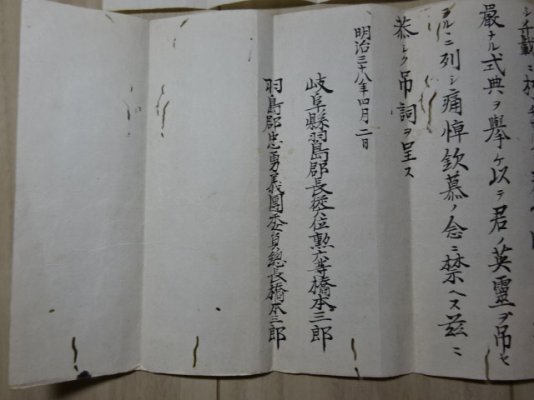 嚴ナル式典ヲ擧ケ以テ君ノ英靈ヲ吊セ
ラルニ列シ痛悼欽慕ノ念ニ禁ヘス茲ニ
恭シク吊詞ヲ呈ス
明治三十八年四月二日
岐阜縣羽島郡長從 位勲六等橋本三郎
羽島郡忠勇義團委員總長橋本三郎